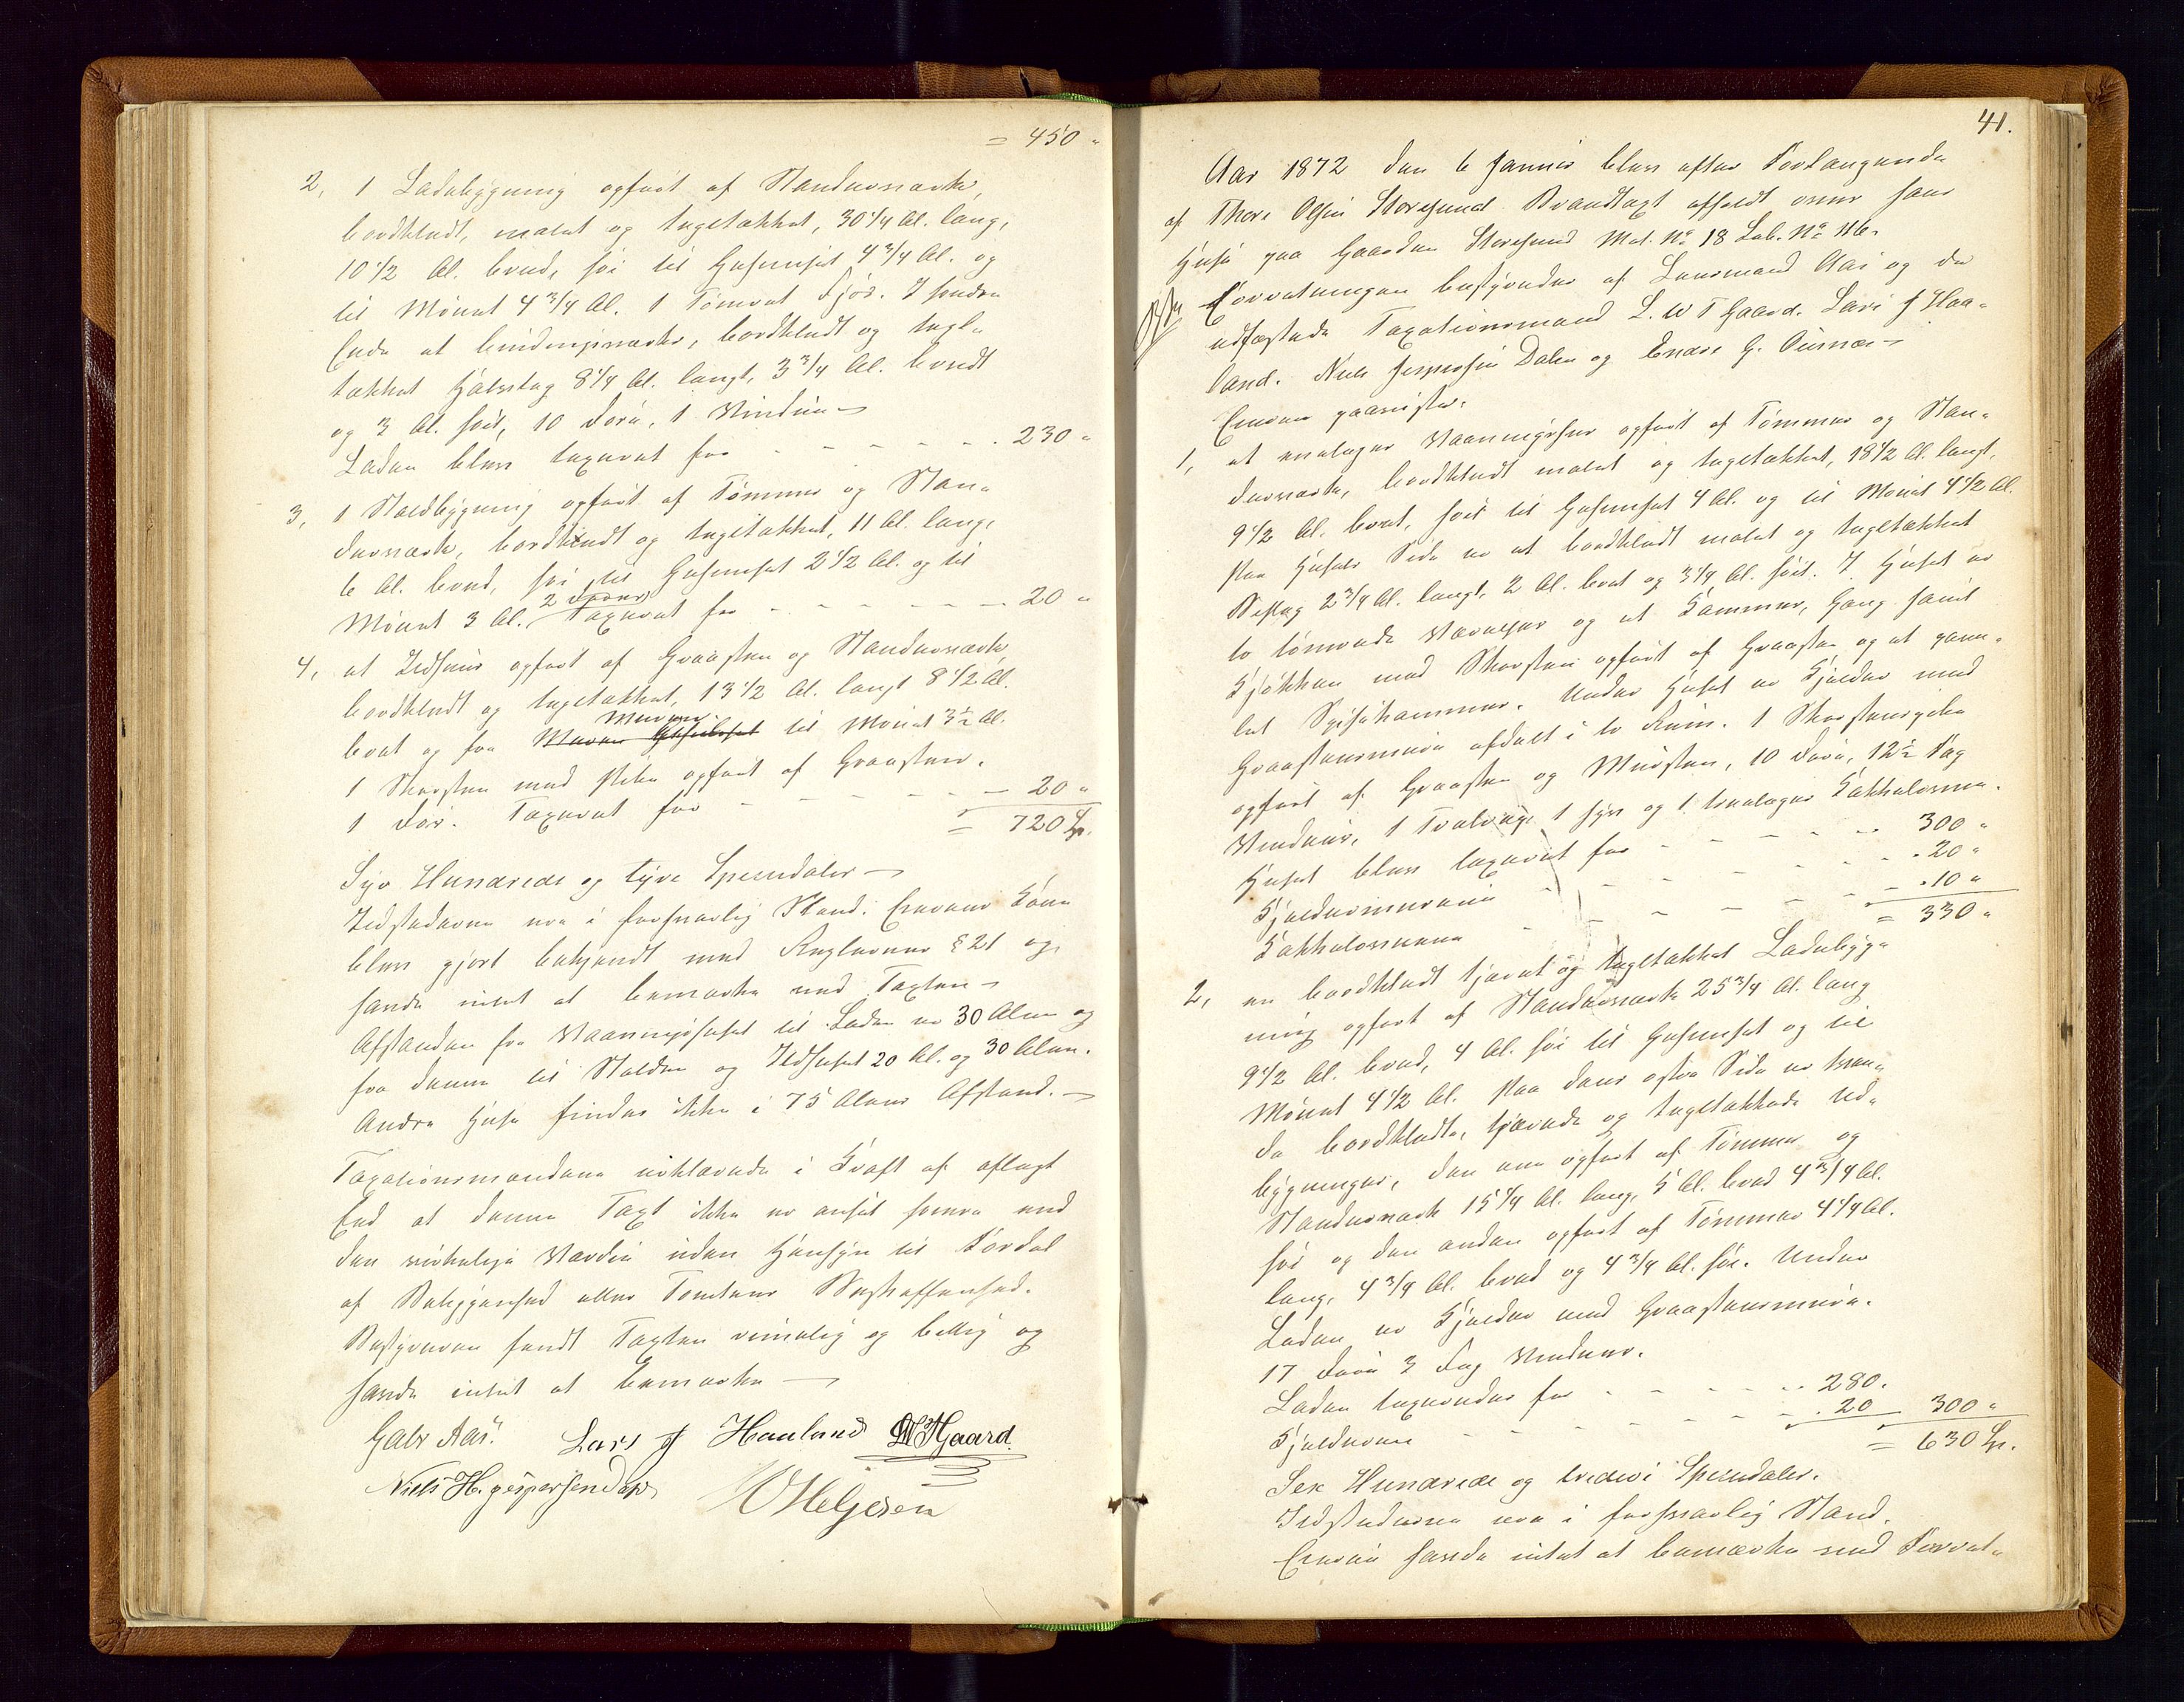 = 450 "
2, 1 Ladebygning opført af Standerverk,
bordklædt, malet og tegltækket, 30 1/4 Al. lang,
10 1/2 Al. bred, høi til Gesimset 4 3/4 Al. og
til Mønet 4 3/4 Al. 1 Tømret Fjøs. I søndre
Ende et bindingsverks, bordklædt og tegl-
tækket Halvtag 8 1/4 Al. langt, 3 3/4 Al. bredt
og 3 Al. høit, 10 Døre, 1 Vindue —
Laden blev taxeret for - - - - - 230 "
3, 1 Staldbygning opført af Tømmer og Stan-
derverk, bordklædt og tegltækket, 11 Al. lang,
6 Al. bred, høi til Gesimset 2 1/2 Al. og til
Mønet 3 Al. 2 Døre Taxeret for - - - - - 20 "
4, et Ildhuus opført af Graasten og Standerverk
bordklædt og tegltækket, 13 1/2 Al. langt 8 1/2 Al.
bret og fra Muren til Mønet 3 1/2 Al.
1 Skorsten med Pibe opført af Graasten.
1 Dør. Taxeret for - - - - - 20 "
= 720 Sp.
Syv Hundrede og tyve Speciedaler —
Ildstederne var i forsvarlig Stand. Eierens Kone
blev gjort bekjendt med Reglernes § 21 og
havde intet at bemærke ved Taxten —
Afstanden fra Vaaningshuset til Laden er 30 Alen og
fra denne til Stalden og Ildhuset 20 Al. og 30 Alen.
Andre Huse findes ikke i 75 Alens Afstand. —
Taxationsmændene erklærede i Kraft af aflagt
Eed at denne Taxt ikke er ansat høiere end
den virkelige Værdie uden Hensyn til Fordel
af Beliggenhed eller Tomtens Beskaffenhed.
Bestyreren fandt Taxten rimelig og billig og
havde intet at bemærke —
Gabr Aas. Lars J Haaland LWTGaard.
Niels H. jespersen Dale O Helgesen
41.
Aar 1872 den 6 Januar blev efter Forlangende
af Thore Olsen Storesund Brandtaxt afholdt over hans
Huse paa Gaarden Storesund Mat. No 18 Løb. No 116.
Forretningen bestyredes af Lensmand Aas og de
udfæstede Taxationsmænd L. W T Gaard. Lars J Haa-
land. Niels Jespersen Dale og Endre G.
Eieren paaviste.
1, et enetages Vaaningshus opført af Tømmer og Stan-
derverk, bordklædt malet og tegltækket, 18 1/2 Al. langt,
9 1/2 Al. bret, høit til Gesimset 4 Al. og til Mønet 4 1/2 Al.
Paa Husets Side er et bordklædt malet og tegltækket
Bislag 2 3/4 Al. langt, 2 Al. bret og 3 1/4 Al. høit. I Huset er
to tømrede Værelser og et Kammer, Gang samt
Kjøkken med Skorsten opført af Graasten og et pane-
let Spisekammer. Under Huset er Kjelder med
Graastensmure afdelt i to Rum. 1 Skorstenspibe
opført af Graasten og Mursten, 10 Døre, 12 1/2 Fag
Vinduer, 1 1 og 1 tveetages Kakkelovne.
Huset blev taxeret for - - - - - 300 "
Kjeldermurene - - - - - 20 "
Kakkelovnene - - - - - 10 "
= 330 "
2, en bordklædt tjæret og tegltækket Ladebyg-
ning opført af Standerverk 25 3/4 Al. lang
9 1/2 Al. bred, 4 Al. høi til Gesimset og til
Mønet 4 1/2 Al. Paa dens østre Side er tven-
de bordklædte, tjærede og tegltækkede Ud-
bygninger, den ene opført af Tømmer og
Standerverk 15 1/4 Al. lang, 5 Al. bred 4 3/4 Al.
høi og den anden opført af Tømmer 4 1/4 Al.
lang, 4 3/4 Al. bred og 4 3/4 Al. høi. Under
Laden er Kjelder med Graastensmure.
17 Døre 3 Fag Vinduer.
Laden taxeredes for - - - - - 280.
Kjelderen - - - - - 20 300 "
= 630 Sp.
Sex Hundrede og tredive Speciedaler.
Ildstederne var i forsvarlig Stand.
Eieren havde intet at bemærke ved Forret-